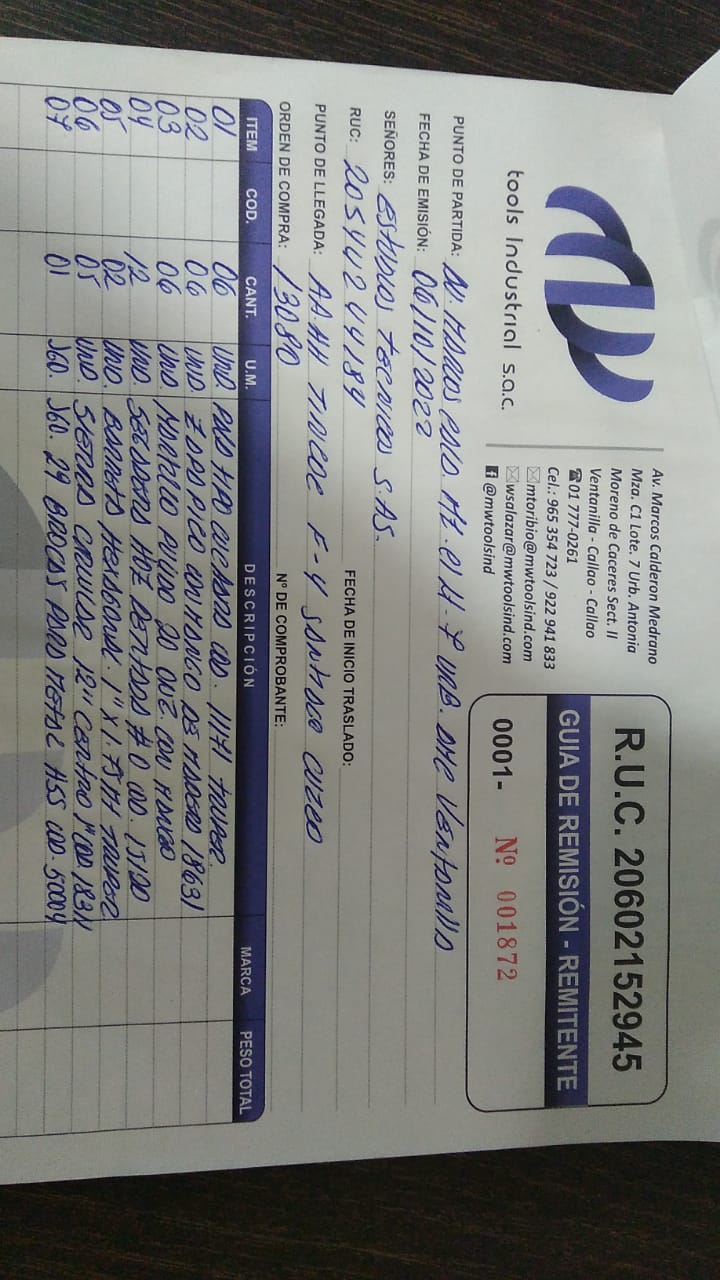 tools Industrial s.a.c.
Av. Marcos Calderon Medrano
Mza. C1 Lote. 7 Urb. Antonia
Moreno de Caceres Sect. II
Ventanilla - Callao - Callao
☎01 777-0261
Cel.: 965 354 723 / 922 941 833
✉mtoribio@mwtoolsind.com
✉wsalazar@mwtoolsind.com
@mwtoolsind
R.U.C. 20602152945
GUIA DE REMISIÓN - REMITENTE
0001- Nº 001872
PUNTO DE PARTIDA: AV. MARCOS CALD. MZ. C1 LT. 7 URB. AMC VENTANILLA
FECHA DE EMISIÓN: 06/10/2022
SEÑORES: ESTUDIOS TECNICOS S.AS.
RUC: 20544244184 FECHA DE INICIO TRASLADO:
PUNTO DE LLEGADA: AA.HH TINCOC F-4 SANTIAGO CUZCO
ORDEN DE COMPRA: 13080 Nº DE COMPROBANTE:
ITEM COD. CANT. U.M. DESCRIPCIÓN MARCA PESO TOTAL
01 06 UND. TIPO CUCHARA COD. 11171 TRUPER
02 06 UND ZAPAPICO CON MANGO DE MADERA 18631
03 06 UND. MARTILLO 20 ONZ. CON MANGO
04 12 UND. HOZ DENTADA # 0 COD. 15100
05 02 UND. BARRETA HEXAGONAL 1" X 1.75 MT TRUPER
06 05 UND. SIERRA CIRCULAR 12" CENTRO 1" COD 18311
07 01 JGO. JGO. 29 BROCAS PARA METAL HSS COD. 5004